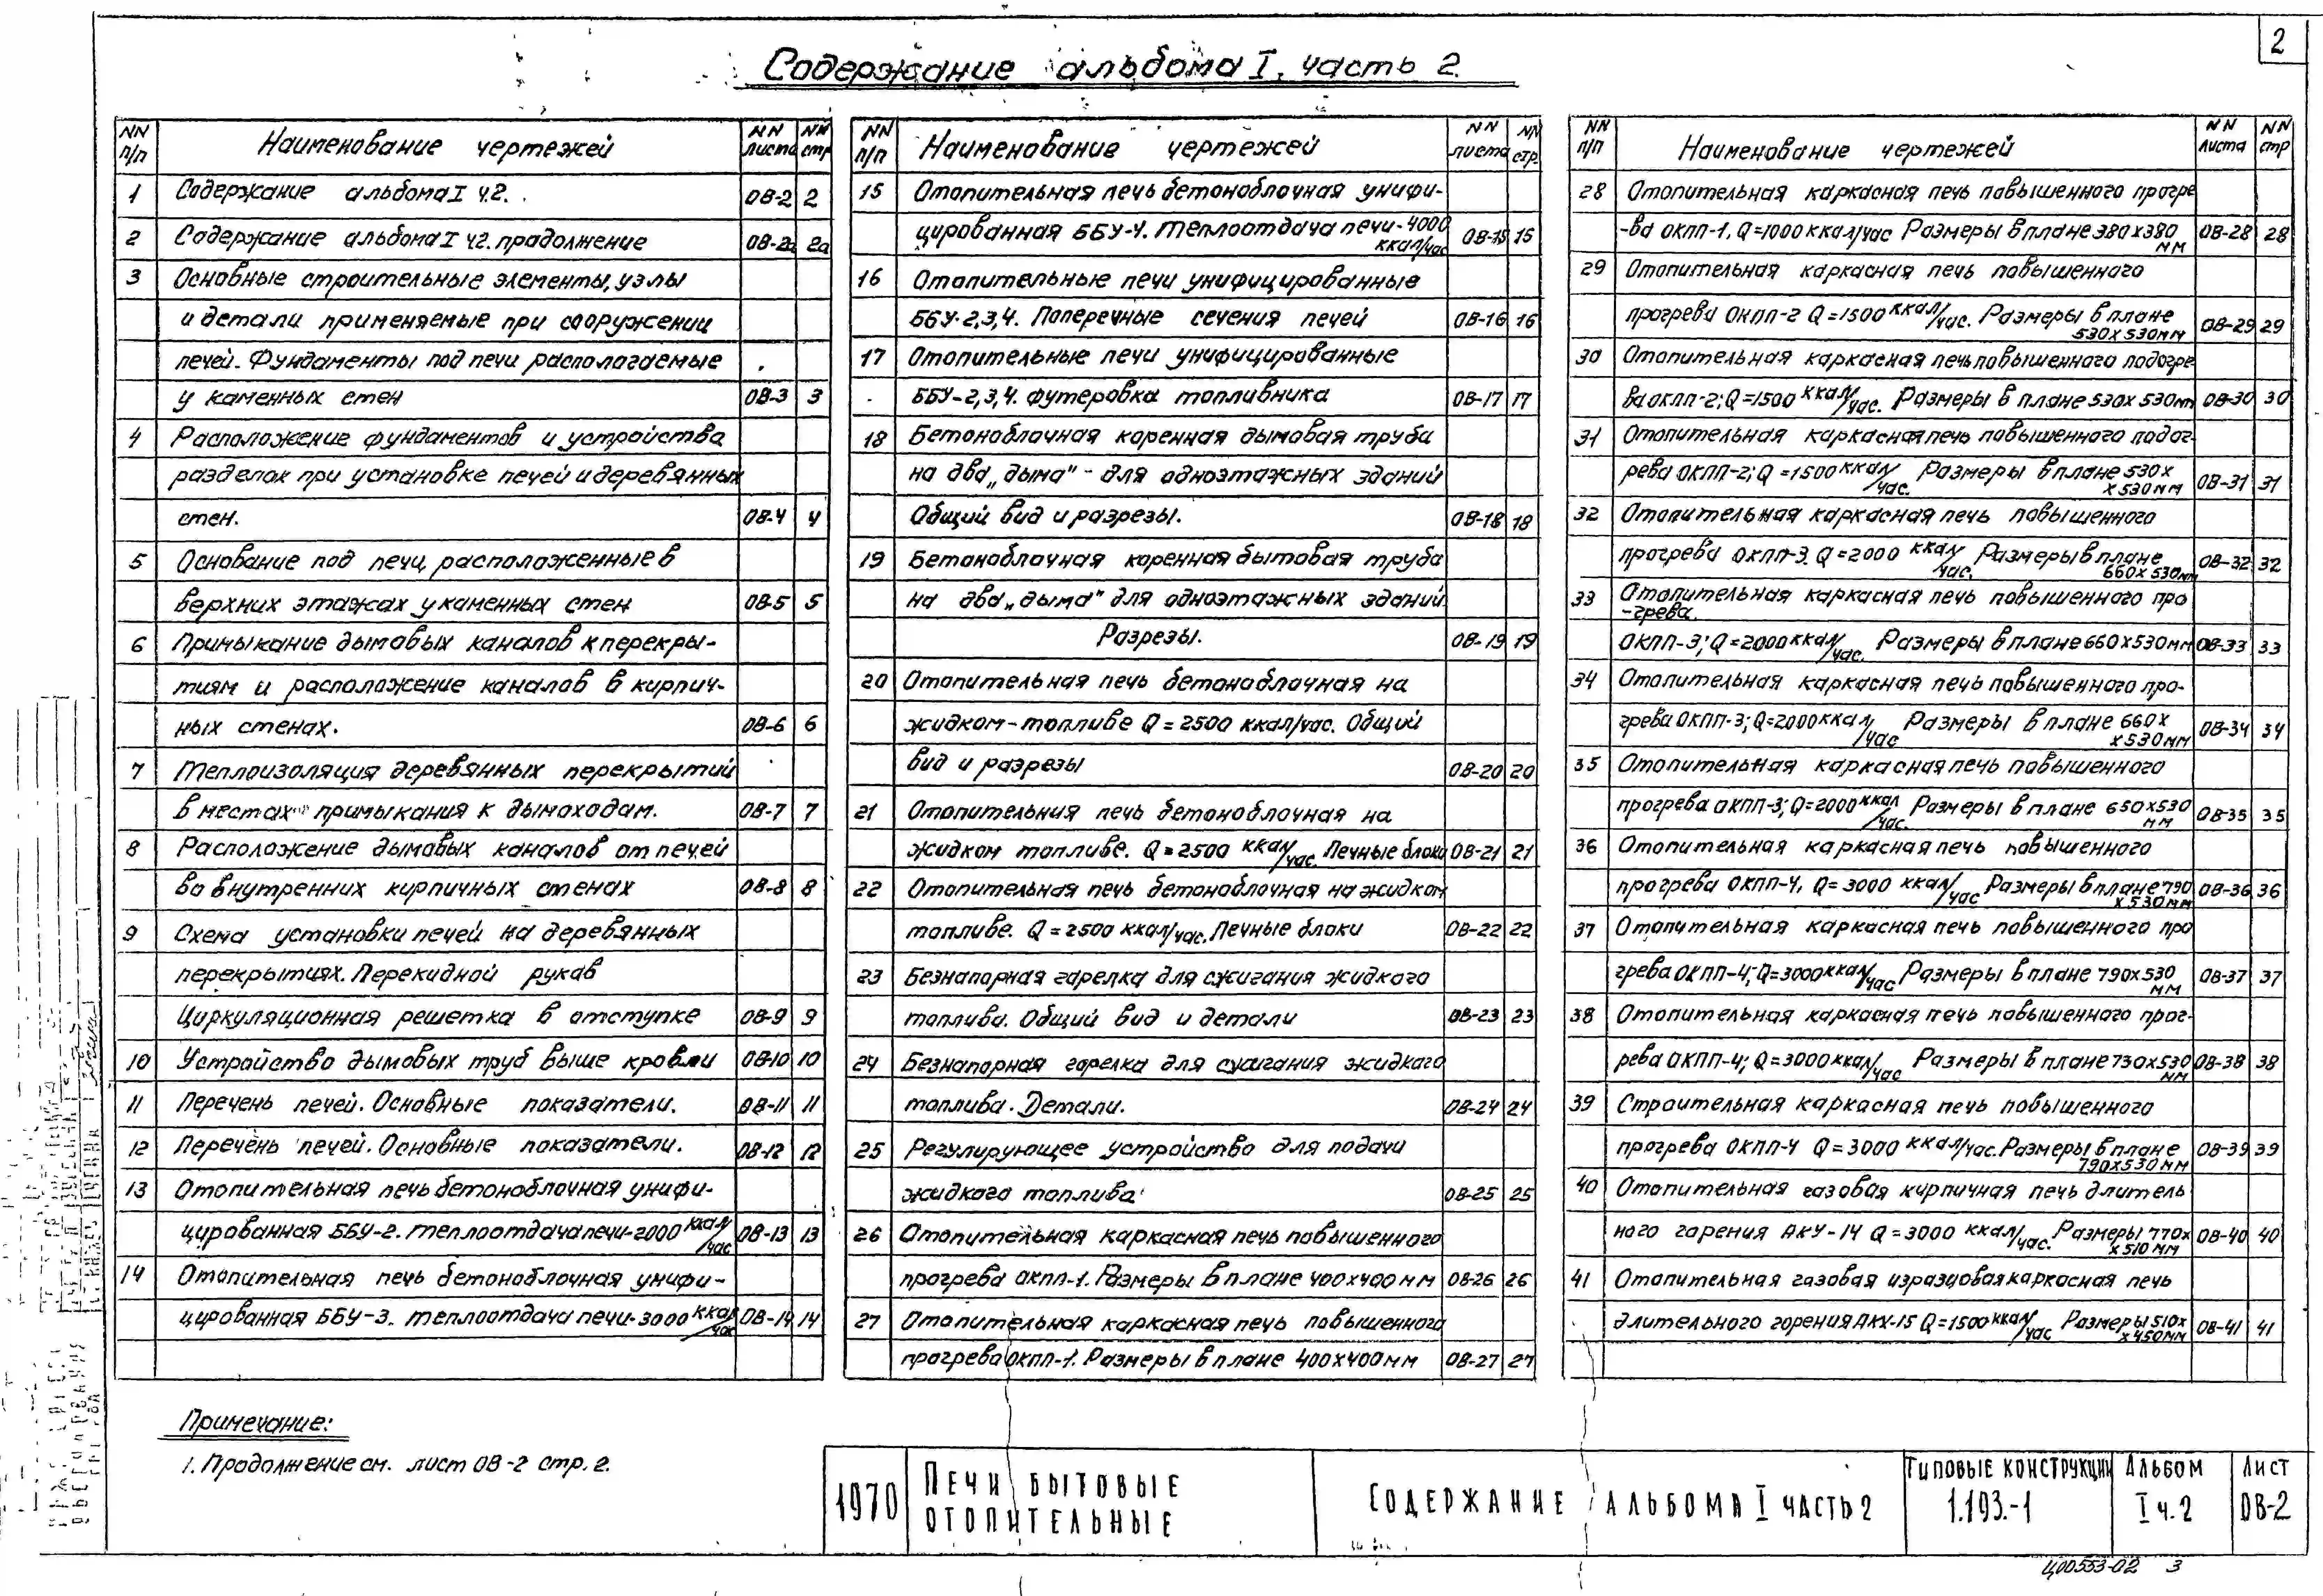 2
Содержание альбома I. часть 2.
NN п/п Наименование чертежей NN листа NN стр
1 Содержание альбома I ч.2. ОВ-2 2
2 Содержание альбома I ч2. прадолжение ОВ-2а 2а
3 Основные строительные элементы, узлы
и детали применяемые при сооружении
печей. Фундаменты под печи располагаемые
у каменных стен ОВ-3 3
4 Расположение фундаментов и устройства
разделок при установке печей и деревянных
стен. ОВ-4 4
5 Основание под печи, расположенные в
верхних этажах у каменных стен ОВ-5 5
6 Примыкание дымовых каналов к перекры-
тиям и расположение каналов в кирпич-
ных стенах. ОВ-6 6
7 Теплоизоляция деревянных перекрытий
в местах примыкания к дымоходам. ОВ-7 7
8 Расположение дымовых каналов от печей
во внутренних кирпичных стенах ОВ-8 8
9 Схема установки печей на деревянных
перекрытиях. Перекидной рукав
Циркуляционная решетка в отступке ОВ-9 9
10 Устройство дымовых труб выше кровли ОВ-10 10
11 Перечень печей. Основные показатели. ОВ-11 11
12 Перечень печей. Основные показатели. ОВ-12 12
13 Отопительная печь бетоноблочная унифи-
цированная ББУ-2. теплоотдача печи-2000 ккал/час ОВ-13 13
14 Отопительная печь бетоноблочная унифи-
цированная ББУ-3. теплоотдача печи-3000 ккал/час ОВ-14 14
NN п/п Наименование чертежей NN листа NN стр.
15 Отопительная печь бетоноблочная унифи-
цированная ББУ-4. теплоотдача печи-4000 ккал/час ОВ-15 15
16 Отопительные печи унифицированные
ББУ-2,3,4. Поперечные сечения печей ОВ-16 16
17 Отопительные печи унифицированные
ББУ-2,3,4. футеровка топливника ОВ-17 17
18 Бетоноблочная коренная дымовая труба
на два „дыма" - для одноэтажных зданий
Общий вид и разрезы. ОВ-18 18
19 Бетоноблочная коренная бытовая труба
на два „дыма" для одноэтажных зданий
Разрезы. ОВ-19 19
20 Отопительная печь бетоноблочная на
жидком-топливе Q = 2500 ккал/час. Общий
вид и разрезы ОВ-20 20
21 Отопительния печь бетоноблочная на
жидком топливе. Q = 2500 ккал/час. Печные блоки ОВ-21 21
22 Отопительная печь бетоноблочная на жидком
топливе. Q = 2500 ккал/час. Печные блоки ОВ-22 22
23 Безнапорная гарелка для сжигания жидкого
топлива. Общий вид и детали ОВ-23 23
24 Безнапорная горелка для сжигания жидкого
топлива. Детали. ОВ-24 24
25 Регулирующее устройство для подачи
жидкого топлива ОВ-25 25
26 Отопительная каркасная печь повышенного
прогрева окпп-1. Размеры в плане 400х400 мм ОВ-26 26
27 Отопительная каркасная печь повышенного
прогрева окпп-1. Размеры в плане 400х400 мм ОВ-27 27
NN п/п Наименование чертежей NN листа NN стр
28 Отопительная каркасная печь повышенного прогре
-ва ОКПП-1, Q=1000 ккал/час Размеры в плане 380х380 мм ОВ-28 28
29 Отопительная каркасная печь повышенного
прогрева ОКПП-2 Q = 1500 ккал/час. Размеры в плане 530х530мм ОВ-29 29
30 Отопительная каркасная печь повышенного подогре-
ва ОКПП-2; Q=1500 ккал/час. Размеры в плане 530х530мм ОВ-30 30
31 Отопительная каркасная печь повышенного подог-
рева ОКПП-2; Q = 1500 ккал/час. Размеры в плане 530х х530мм ОВ-31 31
32 Отопительная каркасная печь повышенного
прогрева ОКПП-3. Q = 2000 ккал/час. Размеры в плане 660х530мм ОВ-32 32
33 Отопительная каркасная печь повышенного про
-грева.
ОКПП-3; Q=2000 ккал/час. Размеры в плане 660х530мм ОВ-33 33
34 Отопительная каркасная печь повышенного про-
грева ОКПП-3; Q=2000 ккал/час Размеры в плане 660х х530мм ОВ-34 34
35 Отопительная каркасная печь повышенного
прогрева ОКПП-3; Q=2000 ккал/час. Размеры в плане 650х530 мм ОВ-35 35
36 Отопительная каркасная печь повышенного
прогрева ОКПП-4, Q= 3000 ккал/час Размеры в плане 790 х530мм ОВ-36 36
37 Отопительная каркасная печь повышенного про
грева ОКПП-4; Q=3000 ккал/час Размеры в плане 790х530 мм ОВ-37 37
38 Отопительная каркасная печь повышенного прог-
рева ОКПП-4; Q=3000 ккал/час Размеры в плане 730х530 мм ОВ-38 38
39 Строительная каркасная печь повышенного
прогрева ОКПП-4 Q = 3000 ккал/час. Размеры в плане 790х530мм ОВ-39 39
40 Отопительная газовая кирпичная печь длитель
ного горения АКУ-14 Q = 3000 ккал/час. Размеры 770х х510мм ОВ-40 40
41 Отопительная газовая изразцовая каркасная печь
длительного горения АКУ-15 Q=1500 ккал/час Размеры 510х х450мм ОВ-41 41
Примечание:
1. Продолжение см. лист ОВ-2 стр. 2.
1970
Печи бытовые
отопительные
Содержание альбома I часть 2
Типовые конструкции
1.193.-1
Альбом
I ч.2
Лист
ОВ-2
Ц00553-02 3